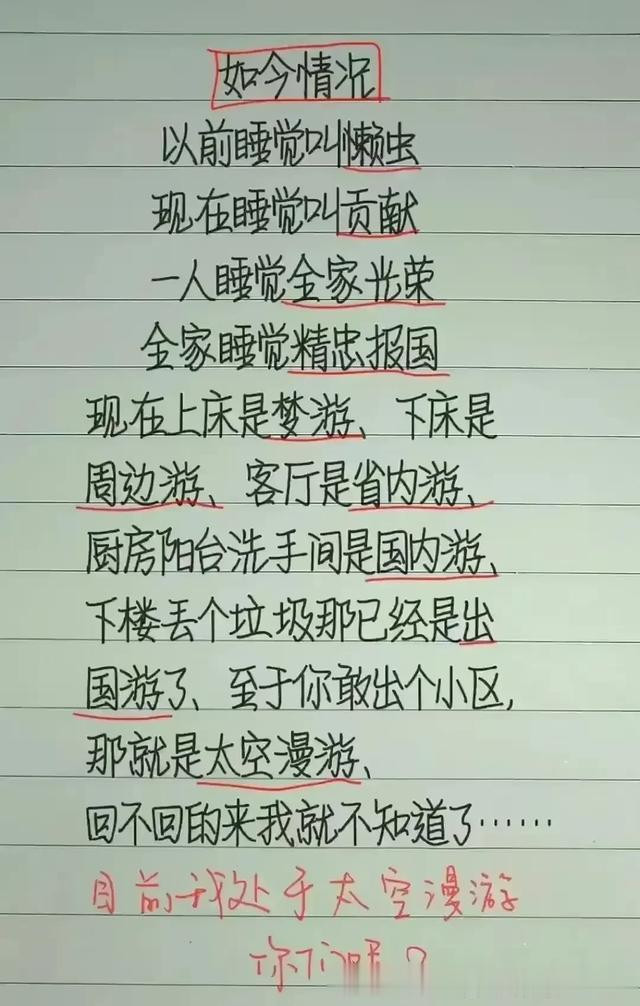 如今情况
以前睡觉叫懒虫
现在睡觉叫贡献
一人睡觉全家光荣
全家睡觉精忠报国
现在上床是梦游、下床是
周边游、客厅是省内游、
厨房阳台洗手间是国内游、
下楼丢个垃圾那已经是出
国游了、至于你敢出个小区,
那就是太空漫游、
回不回的来我就不知道了……
目前我处于太空漫游
你们呢?